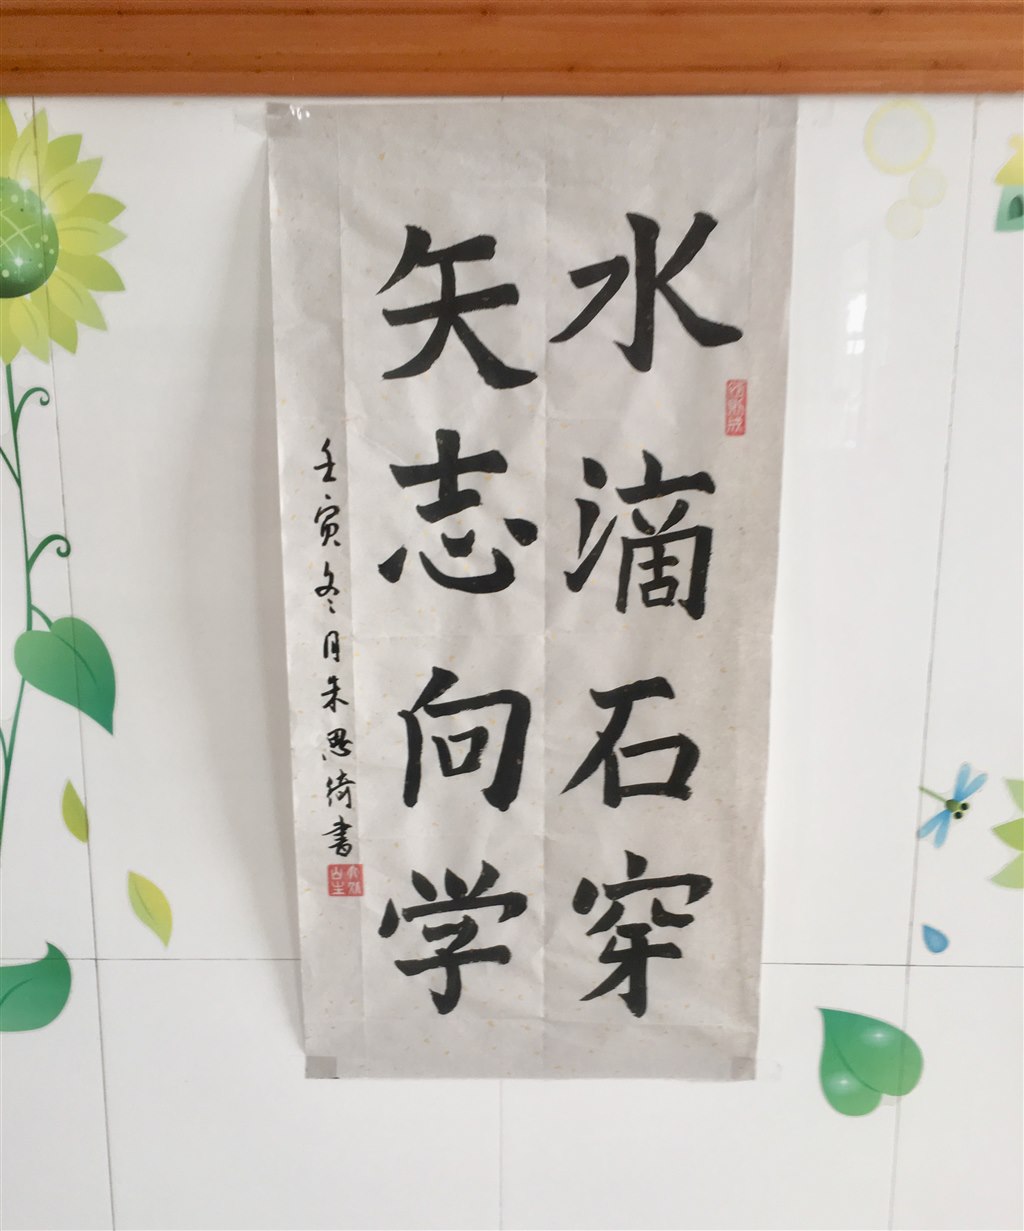 水滴石穿
矢志向学
壬寅冬月朱思绮书